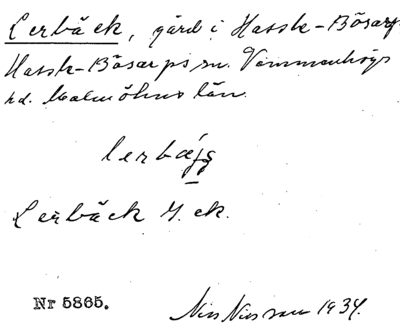 Lerbäck, gård i Hassle-Bösarp
Hassle-Bösarps sn. Vemmenhögs
hd. Malmöhus län.
lerbäɟg
Lerbäck H. ek.
Nr 5865. Nils Nilsson 1934.